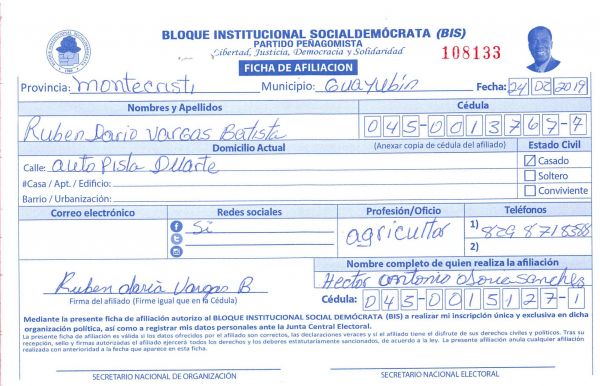 BLOQUE INSTITUCIONAL SOCIALDEMÓCRATA (BIS)
PARTIDO PEÑAGOMISTA
Libertad, Justicia, Democracia y Solidaridad
108133
FICHA DE AFILIACION
Provincia: Montecristi Municipio: Guayubín Fecha: 24 02 2019
Nombres y Apellidos Cédula
Ruben Dario Vargas Batista 045-0013767-7
Domicilio Actual (Anexar copia de cédula del afiliado) Estado Civil
Calle: auto Pista Duarte Casado
#Casa / Apt. / Edificio: Soltero
Barrio / Urbanización: Conviviente
Correo electrónico Redes sociales Profesión/Oficio Teléfonos
Si agricultor 1) 829 8718588
2)
Nombre completo de quien realiza la afiliación
Ruben dario Vargas B Hector Antonio Sanchez
Firma del afiliado (Firme igual que en la Cédula) Cédula: 045-0015127-1
Mediante la presente ficha de afiliación autorizo al BLOQUE INSTITUCIONAL SOCIAL DEMÓCRATA (BIS) a realizar mi inscripción única y exclusiva en dicha
organización política, así como a registrar mis datos personales ante la Junta Central Electoral.
La presente ficha de afiliación es válida si los datos ofrecidos por el afiliado son correctos, las declaraciones veraces y si el afiliado tiene el disfrute de sus derechos civiles y políticos. Tras su
recepción, sello y firma autorizadas el afiliado ejercerá todos los derechos y los deberes estatutariamente sancionados, de acuerdo a la ley. La presente afiliación anula cualquier afiliación
realizada con anterioridad a la fecha que aparece en esta ficha.
SECRETARIO NACIONAL DE ORGANIZACIÓN SECRETARIO NACIONAL ELECTORAL